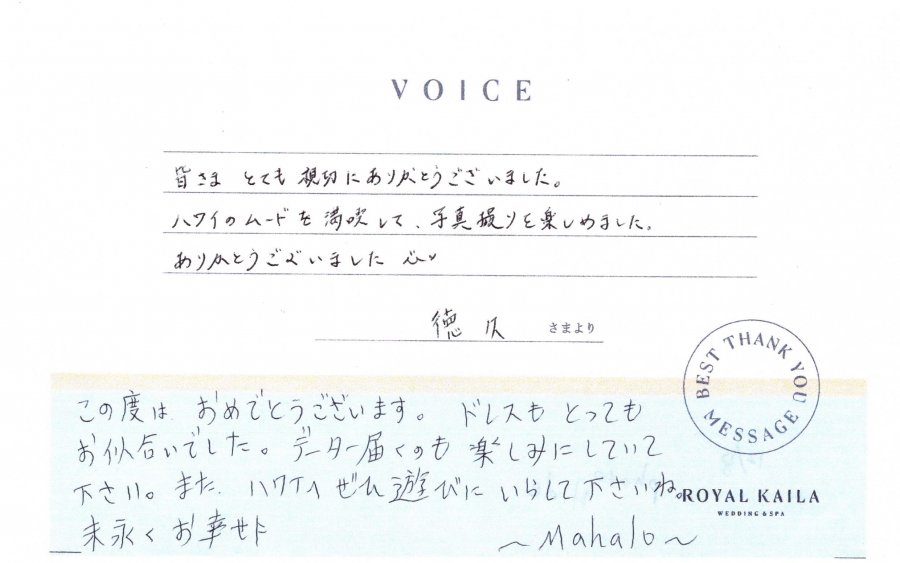 VOICE
皆さま とても 親切にありがとうございました。
ハワイのムードを満喫して、写真撮りを楽しめました。
ありがとうございました
徳久 さまより
BEST THANK YOU MESSAGE
この度は おめでとうございます。 ドレスも とっても
お似合いでした。データー届くのも 楽しみにしていて
下さい。また、ハワイへ ぜひ 遊びに いらして下さいね。
ROYAL KAILA
WEDDING & SPA
末永くお幸せに
~Mahalo~